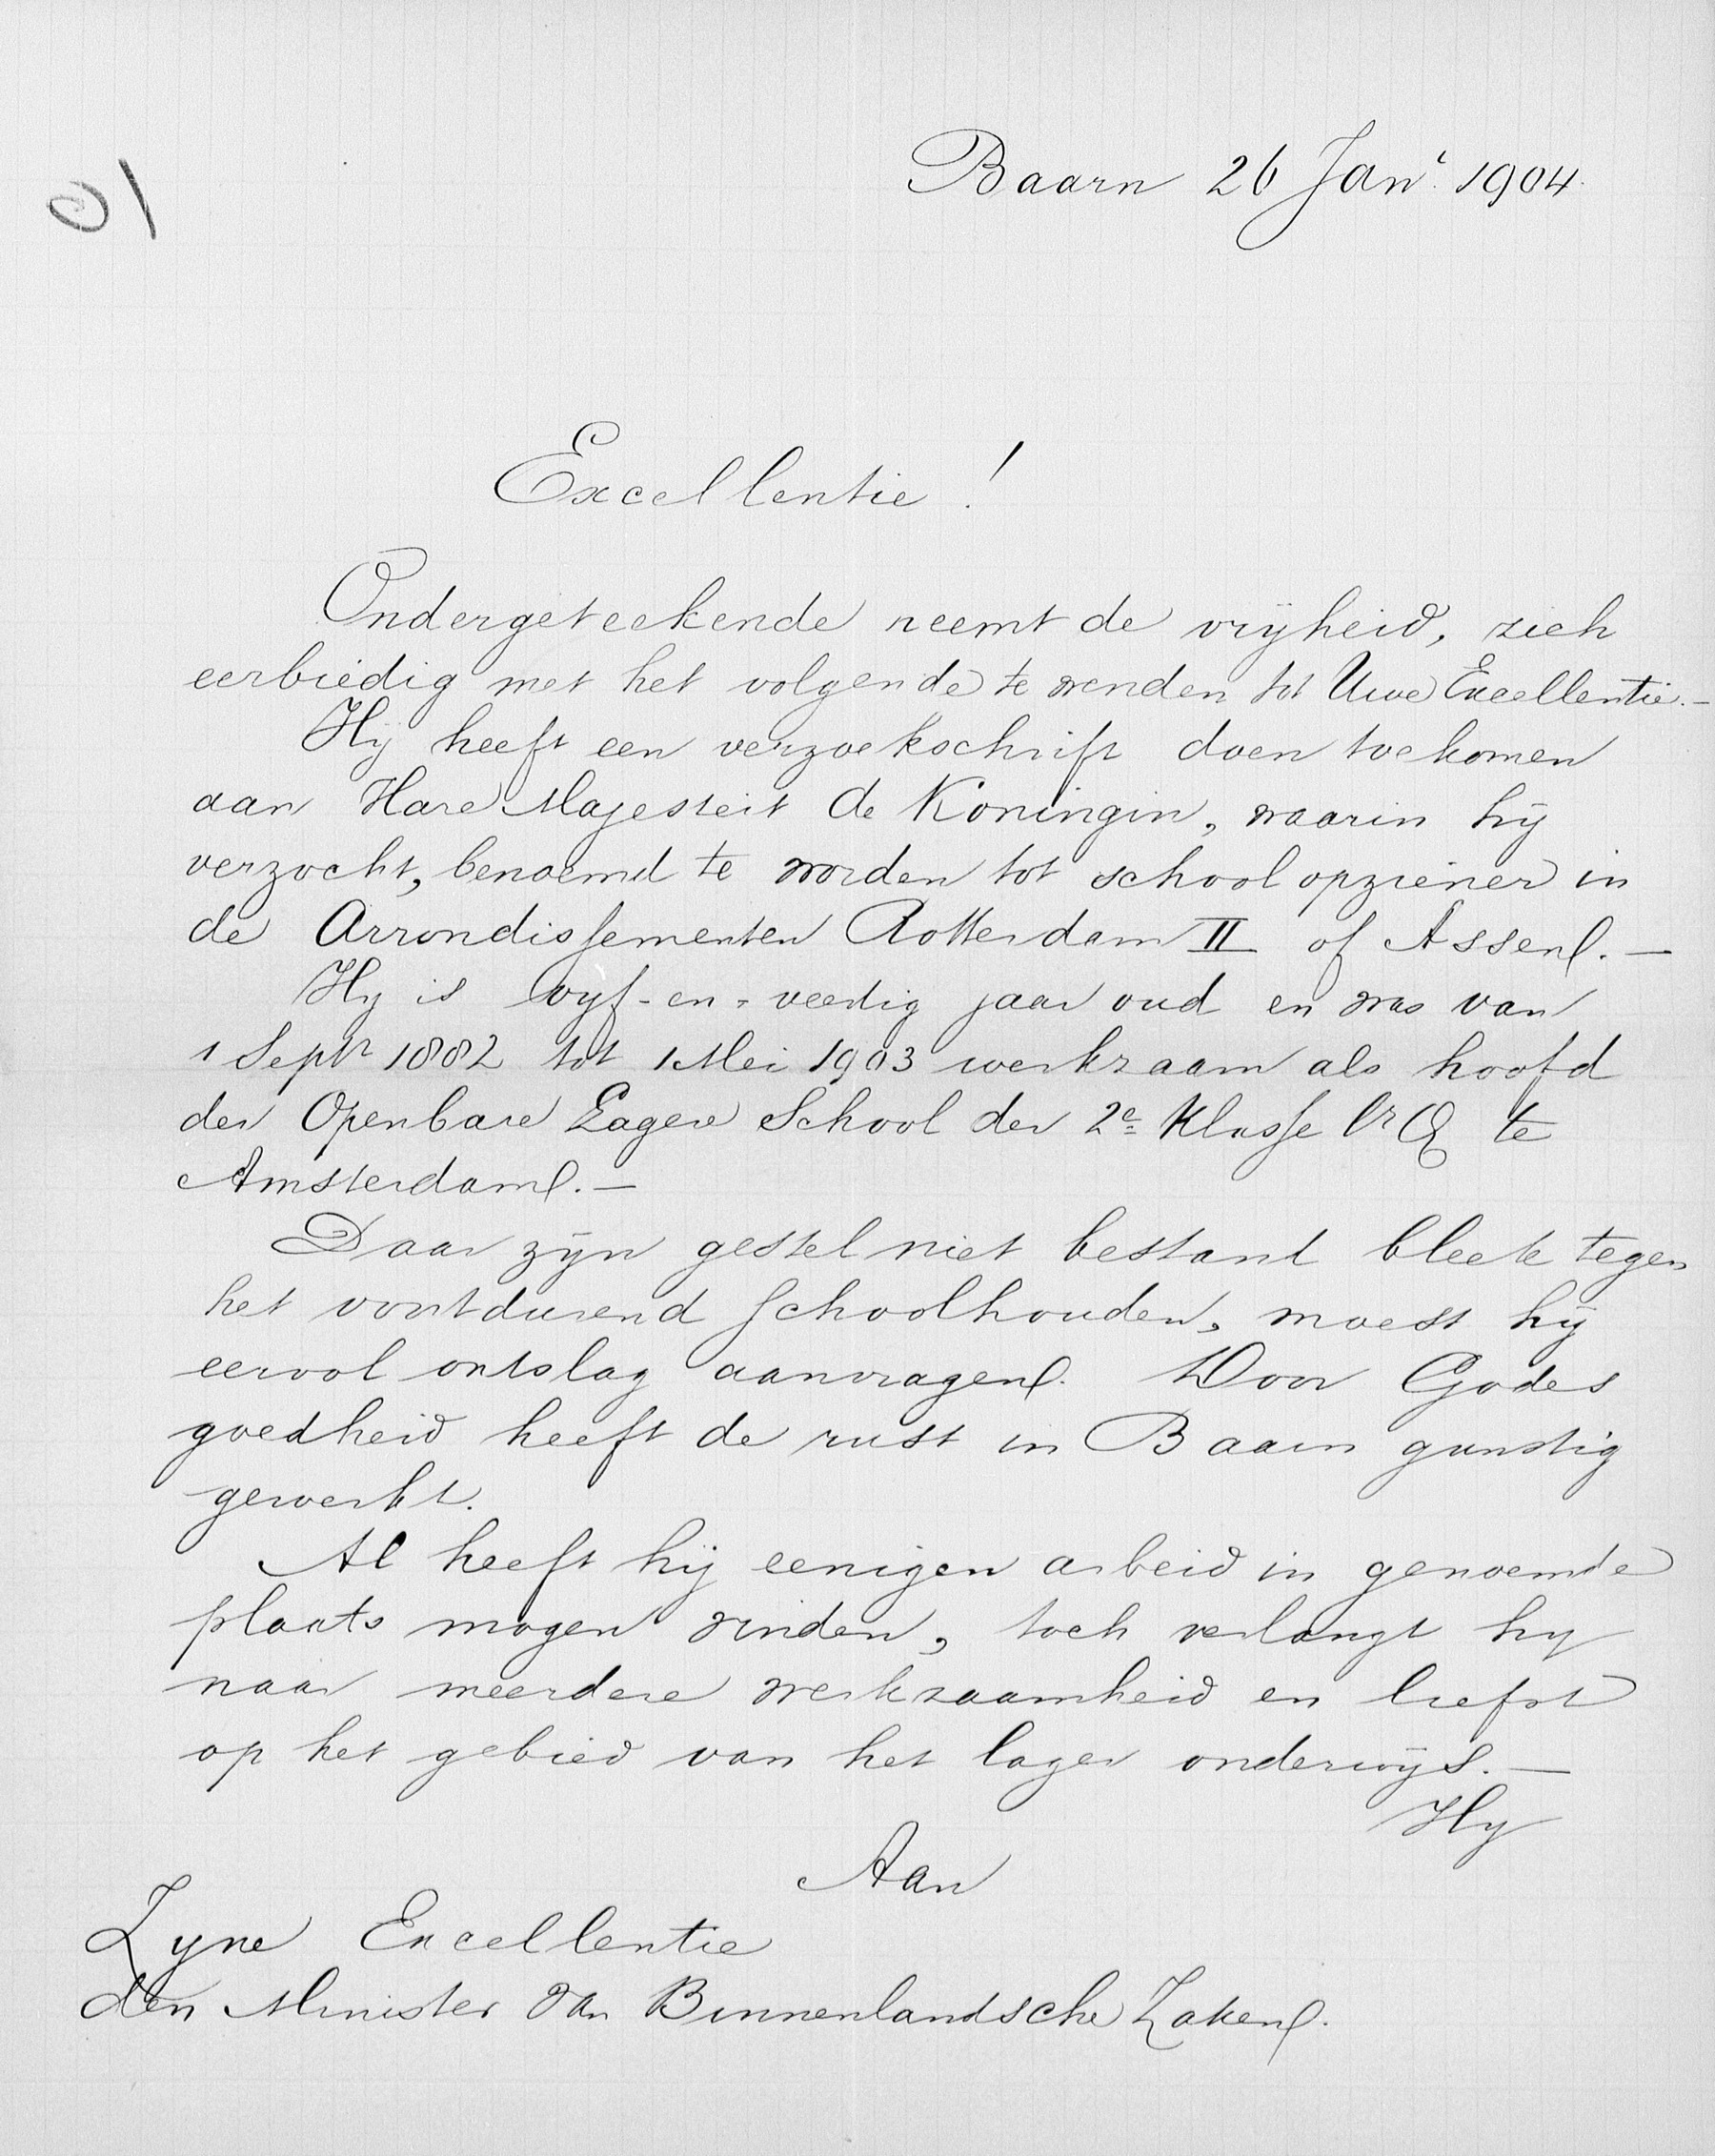 Baarn 26 Jan. 1904.
Excellentie!
Ondergeteekende neemt de vrijheid, zich
eerbiedig met het volgende te wenden tot Uwe Excellentie.—
Hij heeft een verzoekschrift doen toekomen
aan Hare Majesteit de Koningin, waarin hij
verzocht, benoemd te worden tot schoolopziener in
de Arrondissementen Rotterdam II of Assen.—
Hij is vijf-en-veertig jaar oud en was van
1 Septr 1882 tot 1 Mei 1903 werkzaam als hoofd
der Openbare Lagere School der 2e Klasse te
Amsterdam.—
Daar zijn gestel niet bestand bleek tegen
het voortdurend schoolhouden, moest hij
eervol ontslag aanvragen. Door Godes
goedheid heeft de rust in Baarn gunstig
gewerkt.
Al heeft hij eenigen arbeid in genoemde
plaats mogen vinden, toch verlangt hij
naar meerdere werkzaamheid en liefst
op het gebied van het lager onderwijs.—
Hij
Aan
Zijne Excellentie
den Minister van Binnenlandsche Zaken.